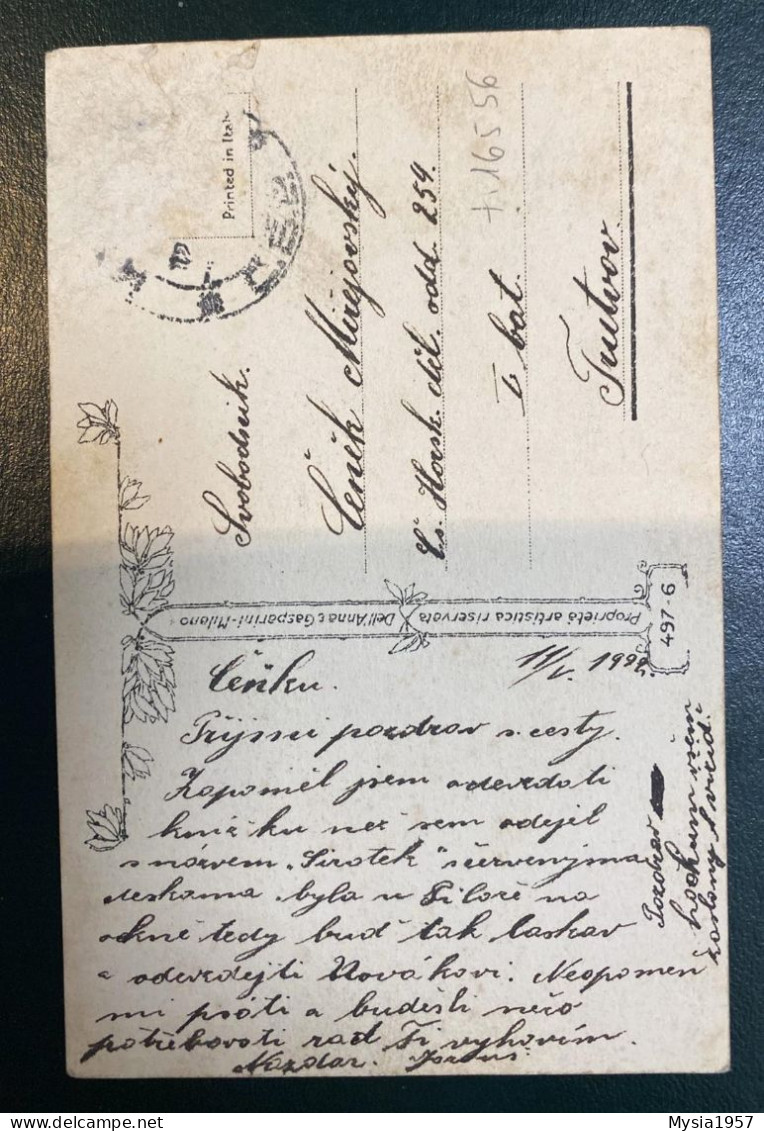 Printed in Italy
+1165 56
Svobodník.
Čeněk Mirějovský.
Čs. Horsk. děl. odd. 259.
I bat.
Trutnov.
Proprietá artistica riservata
Dell'Anna & Gasparini-Milano
497-6
11/V. 192
Čeňku.
Příjmi pozdrav s cesty.
Zapoměl jsem odevzdati
knížku než sem odejel
s názvem „Sirotek" s červenýma
deskama. byla u na
okně tedy buď tak laskav
a odevzdej ti Novákovi. Neopomeň
mi psáti a budešli něco
potřebovati rád Ti vyhovím.
Nazdar.
Pozdrav
hochum všem
Mysia1957